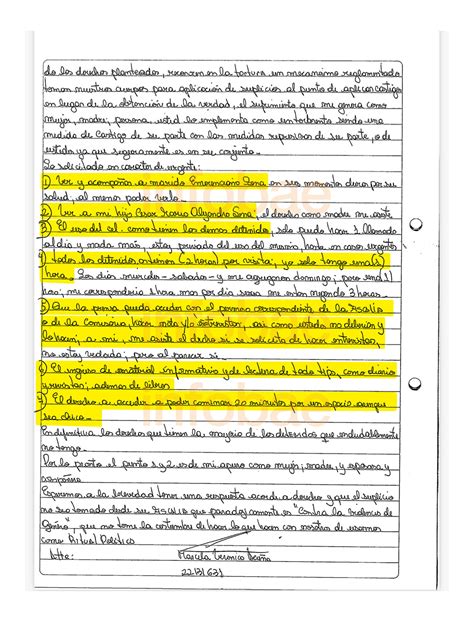 de los derechos planteados, reconocen en la tortura un mecanismo reglamentado
toman nuestros cuerpos para aplicación de suplicios al punto de aplicar castigos
en lugar de la obtención de la verdad, el sufrimiento que me genera como
mujer, madre, persona, usted lo implementa como un
medida de castigo de su parte con las medidas represivas de su parte, o de
estado ya que seguramente es en su conjunto.-
Lo solicitado en caracter de urgente:
1) Ver y acompañar a marido Emerenciano Sena en sus momentos duros por su
salud, al menos poder verlo.-
2) Ver a mi hijo Cesar Mario Alejandro Sena, el derecho como madre me asiste
3) El uso del cel. como tienen los demas detenidos, solo puedo hacer 1 llamado
al día y nada mas, estoy privada del uso del mismo, hasta en casos urgentes
4) todos los detenidos tienen (2 horas) por visita, yo solo tengo una (1)
hora.- Los días miercoles - sabados - y me agregaron domingo; pero una (1)
hora; me correspondería 1 hora mas por día seria me estan negando 3 horas.-
5) Que la prensa pueda acceder con el permiso correspondiente de la Fiscalia
o de la Comisaria, hacer nota y/o entrevistas, asi como ustedes no deberian y
lo hacen, a mi, me asiste el dicho si se solicita de hacer entrevistas,
no estoy vedada; pero al parecer si.-
6) El ingreso de material informativo y de lectura de todo tipo, como diario
y revistas; ademas de libros
7) El derecho a acceder a poder caminar 20 minutos por un espacio aunque
sea chico.-
En definitiva los derechos que tienen la mayoria de los detenidos que indudablemente
no tengo.-
Por lo pronto el punto 1 y 2 es de mi apuro como mujer; madre, y esposa y
compañera
Esperemos a la brevedad tener una respuesta acorde a derecho y que el suplicio
no sea tomado desde su Fiscalia que paradojicamente es "Contra la Violencia de
Genero", que no tome la costumbre de hacer lo que hacen con nosotros de usarnos
como Ritual Politico
Marcela Veronica Acuña
22131631
infobae
infobae